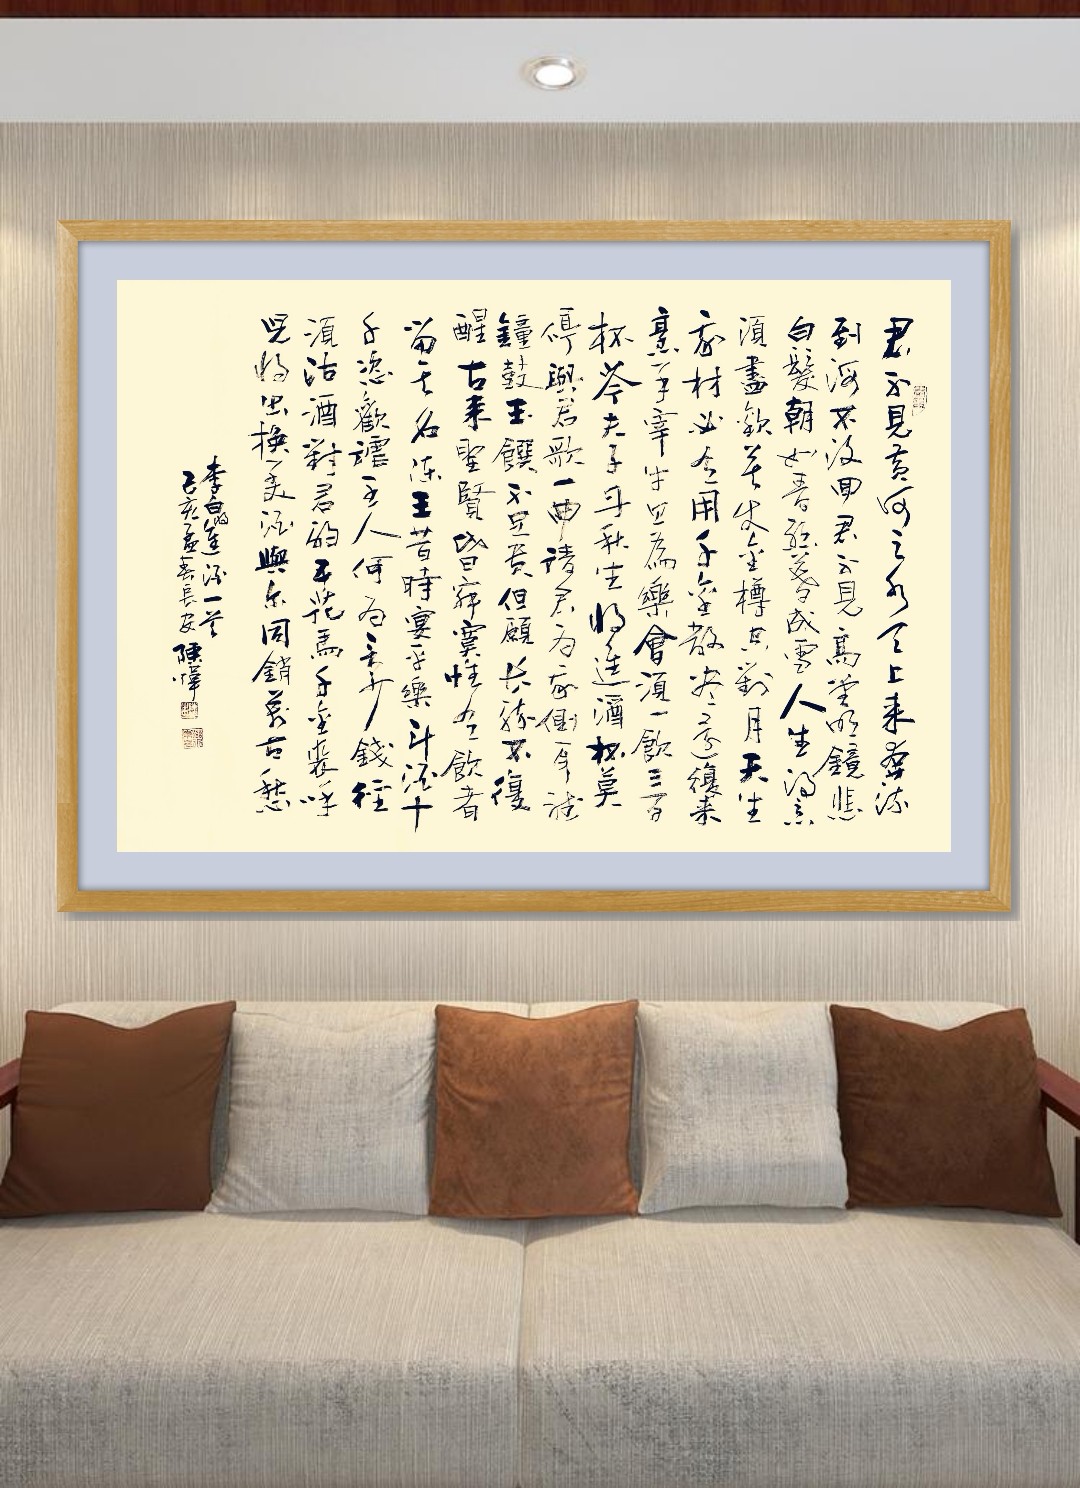 君不見黃河之水天上来奔流
到海不復回君不見高堂明鏡悲
白髮朝如青絲暮成雪人生得意
須盡歡莫使金樽空對月天生
我材必有用千金散盡還復来
烹羊宰牛且為樂會須一飲三百
杯岑夫子丹丘生將進酒杯莫
停與君歌一曲請君為我側耳聽
鐘鼓玉饌不足貴但願長醉不復
醒古来聖賢皆寂寞惟有飲者
留其名陳王昔時宴平樂斗酒十
千恣歡謔主人何為言少錢徑
須沽酒對君酌五花馬千金裘呼
兒將出換美酒與尔同銷萬古愁
李白將進酒一首
己亥孟春長安陳燁